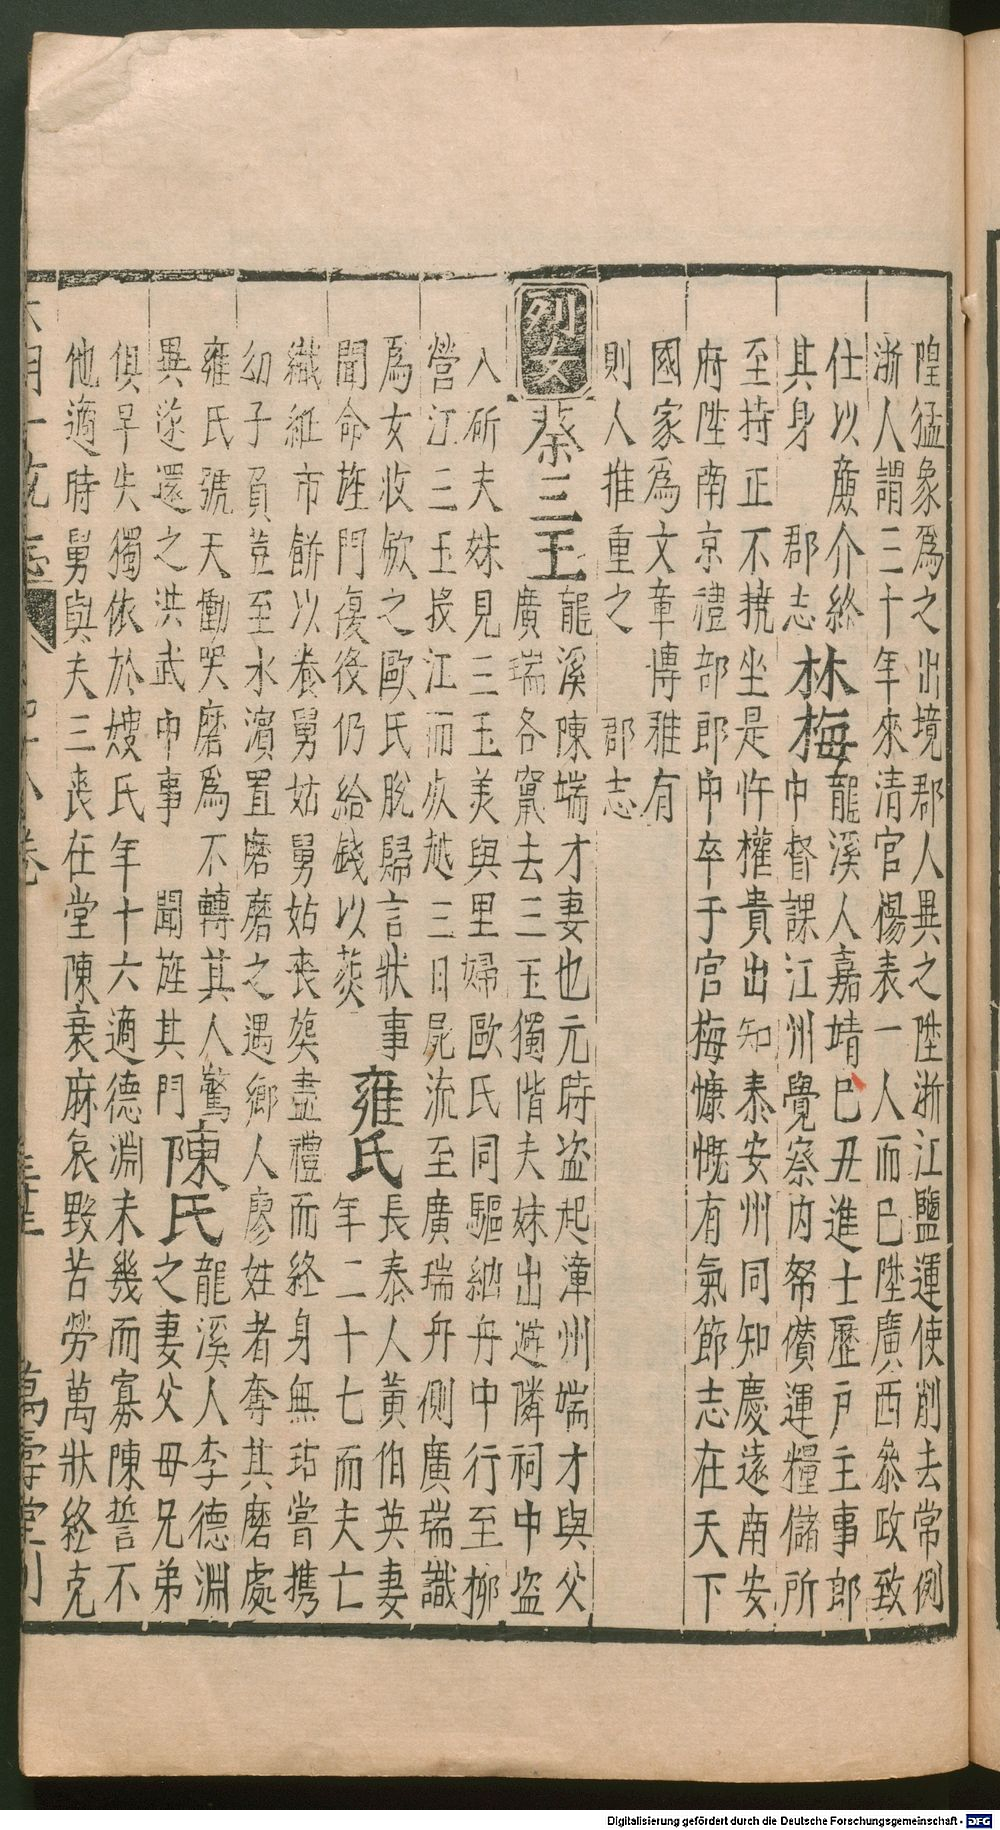 隍猛象爲之出境郡人異之陞浙江鹽運使削去常例
浙人謂三十年來清官惕表一人而已陞廣西叅政致
仕以廉介終
其身　郡志
林梅
龍溪人嘉靖巳丑進士歷戶主事郎
中督課江州覺察内帑儹運糧儲所
至持正不撓坐是忤權貴出知泰安州同知慶遠南安
府陞南京禮部郎中卒于官梅慷慨有氣節志在天下
國家爲文章博雅有
則人推重之　郡志
列女
蔡三玉
龍溪陳端才妻也元時盜起漳州端才與父
廣瑞各竄去三玉獨偕夫妹出避隣祠中盜
入斫夫妹見三玉美與里婦歐氏同驅納舟中行至柳
營江三玉投江而死越三日屍流至廣瑞舟側廣瑞識
爲女收斂之歐氏脫歸言狀事
聞命旌門復役仍給錢以葬
雍氏
長泰人黃伯英妻
年二十七而夫亡
織紝市餅以養舅姑舅姑喪葬盡禮而終身無玷嘗携
幼子負荳至水濵置磨磨之遇鄉人廖姓者奪其磨處
雍氏號天慟哭磨爲不轉其人驚
異遂還之洪武中事　聞旌其門
陳氏
龍溪人李德淵
之妻父母兄弟
俱早失獨依於嫂氏年十六適德淵未幾而寡陳誓不
他適時舅與夫三喪在堂陳衰麻哀毀苦勞萬狀終克
萬壽堂刊
Digitalisierung gefördert durch die Deutsche Forschungsgemeinschaft - DFG